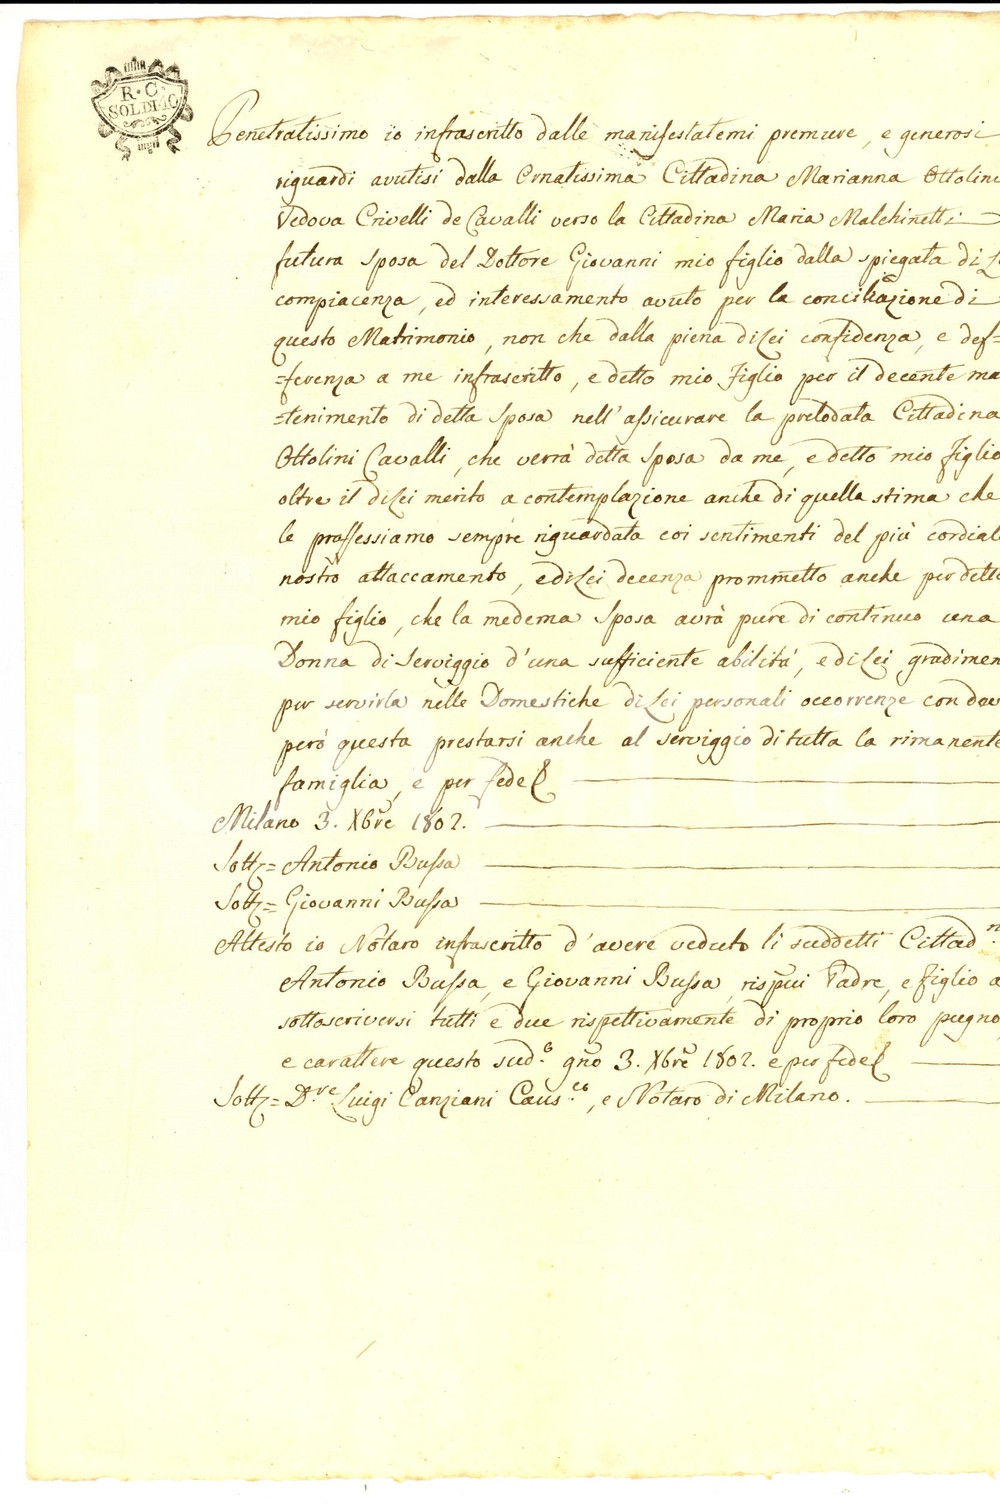 R. C.
SOLDI 10
Penetratissimo io infrascritto dalle manifestatemi premure, e generosi
riguardi avutisi dalla Ornatissima Cittadina Marianna Ottolini
Vedova Crivelli de Cavalli verso la Cittadina Maria Malchinetti
futura Sposa del Dottore Giovanni mio figlio dalla spiegata di Le
compiacenza, ed interessamento avuto per la conciliazione di
questo Matrimonio, non che dalla piena di Lei confidenza, e def=
=ferenza a me infrascritto, e detto mio Figlio per il decente ma
=tenimento di detta Sposa nell'assicurare la prelodata Cittadina
Ottolini Cavalli, che verrà detta Sposa da me, e detto mio Figlio
oltre il di Lei merito a contemplazione anche di quella stima che
le professiamo sempre riguardata coi sentimenti del più cordial
nostro attaccamento, e di Lei decenza prommetto anche per detto
mio figlio, che la medema Sposa avrà pure di continuo una
Donna di Serviggio d'una sufficiente abilità, e di Lei gradimen
per servirla nelle Domestiche di Lei personali occorrenze con dov
però questa prestarsi anche al serviggio di tutta la rimanente
famiglia, e per fede
Milano 3. Xbre 1802.
Sott= Antonio Bussa
Sott= Giovanni Bussa
Attesto io Notaro infrascritto d'avere veduto li suddetti Cittad.n
Antonio Bussa, e Giovanni Bussa, rispvi Padre, e figlio a
sottoscriversi tutti e due rispettivamente di proprio loro pugno
e carattere questo sud.o gno 3. Xbre 1802. e per fede
Sott= D.re Luigi Canziani Caus.co, e Notaro di Milano.